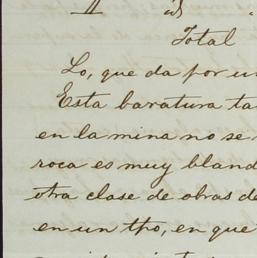 Total
Lo, que da por un
Esta baratura ta
en la mina no se
roca es muy bland
otra clase de obras de
en un tpo, en que